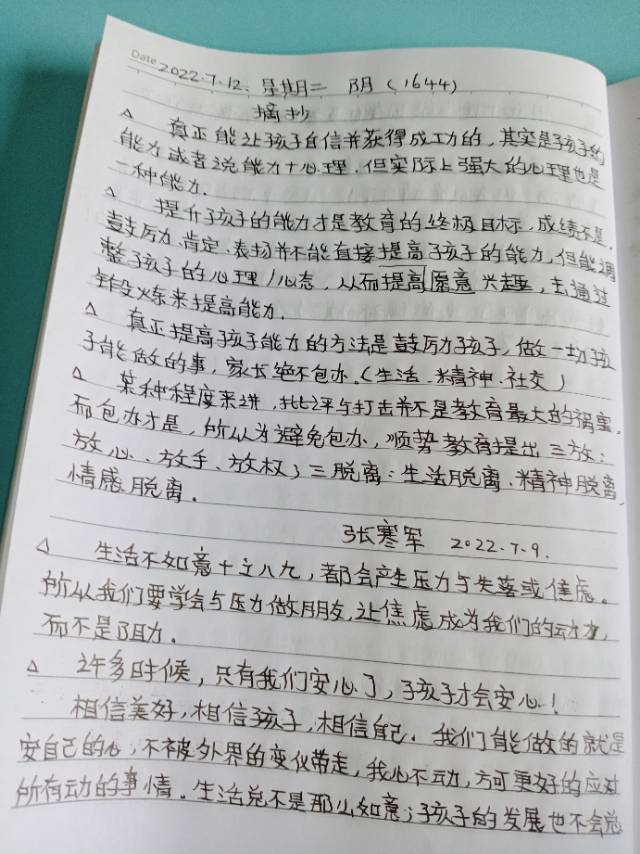 Date 2022.7.12. 星期二 阴(1644)
摘抄
△ 真正能让孩子自信并获得成功的,其实是孩子的
能力或者说能力+心理,但实际上强大的心理也是
一种能力.
△ 提升孩子的能力才是教育的终极目标,成绩不是.
鼓励.肯定.表扬并不能直接提高孩子的能力,但能调
整孩子的心理/心态,从而提高愿意兴趣,主通过
锻炼来提高能力.
△ 真正提高孩子能力的方法是鼓励孩子,做一切孩
子能做的事,家长绝不包办.(生活.精神.社交)
△ 某种程度来讲,批评与打击并不是教育最大的祸害,
而包办才是,所以为避免包办,顺势教育提出三放:
放心、放手、放权;三脱离:生活脱离.精神脱离,
情感脱离.
张寒军 2022.7.9.
△ 生活不如意十之八九,都会产生压力于失落或焦虑。
所以我们要学会与压力做朋友,让焦虑成为我们的动力,
而不是阻力.
△ 许多时候,只有我们安心了,孩子才会安心!
相信美好,相信孩子,相信自己.我们能做的就是
安自己的心,不被外界的变化带走,我心不动,方可更好的应对
所有动的事情.生活总不是那么如意;孩子的发展也不会总